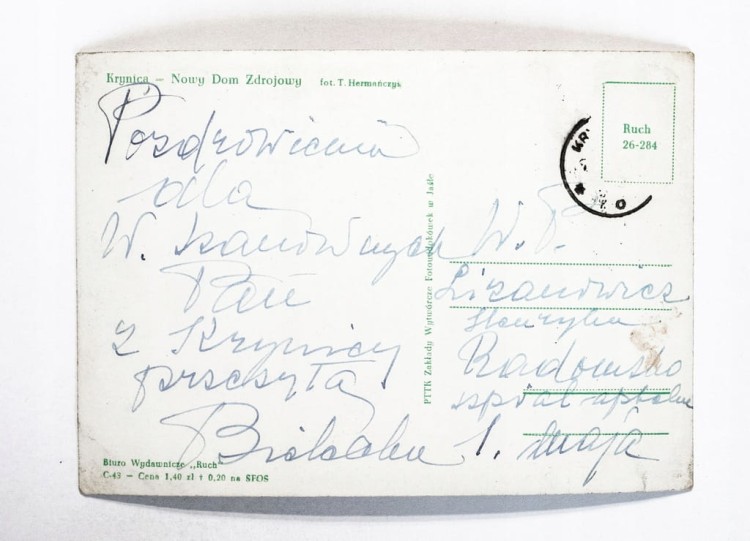 Krynica — Nowy Dom Zdrojowy fot. T. Hermańczyk
Pozdrowienia
dla
W. Szanownych
Pań
z Krynicy
przesyła
Biuro Wydawnicze „Ruch"
C-43 — Cena 1,40 zł + 0,20 na SFOS
PTTK Zakłady Wytwórcze Fotowidokówek w Jaśle
Ruch
26-284
KR
W. P.
Lizanowicz
Henryka
Radomsko
1. Maja